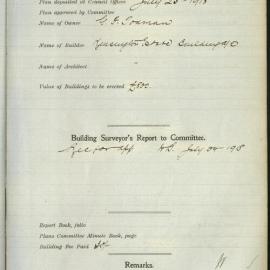 Plan deposited at Council Offices July 23 - 1918
Plan approved by Committee
Name of Owner G. F.
Name of Builder Kensington Estate
Name of Architect "
Value of Buildings to be erected £500
Building Surveyor's Report to Committee.
July 30 - 1918
Report Book, folio
Plans Committee Minute Book, page
Building Fee Paid
Remarks.